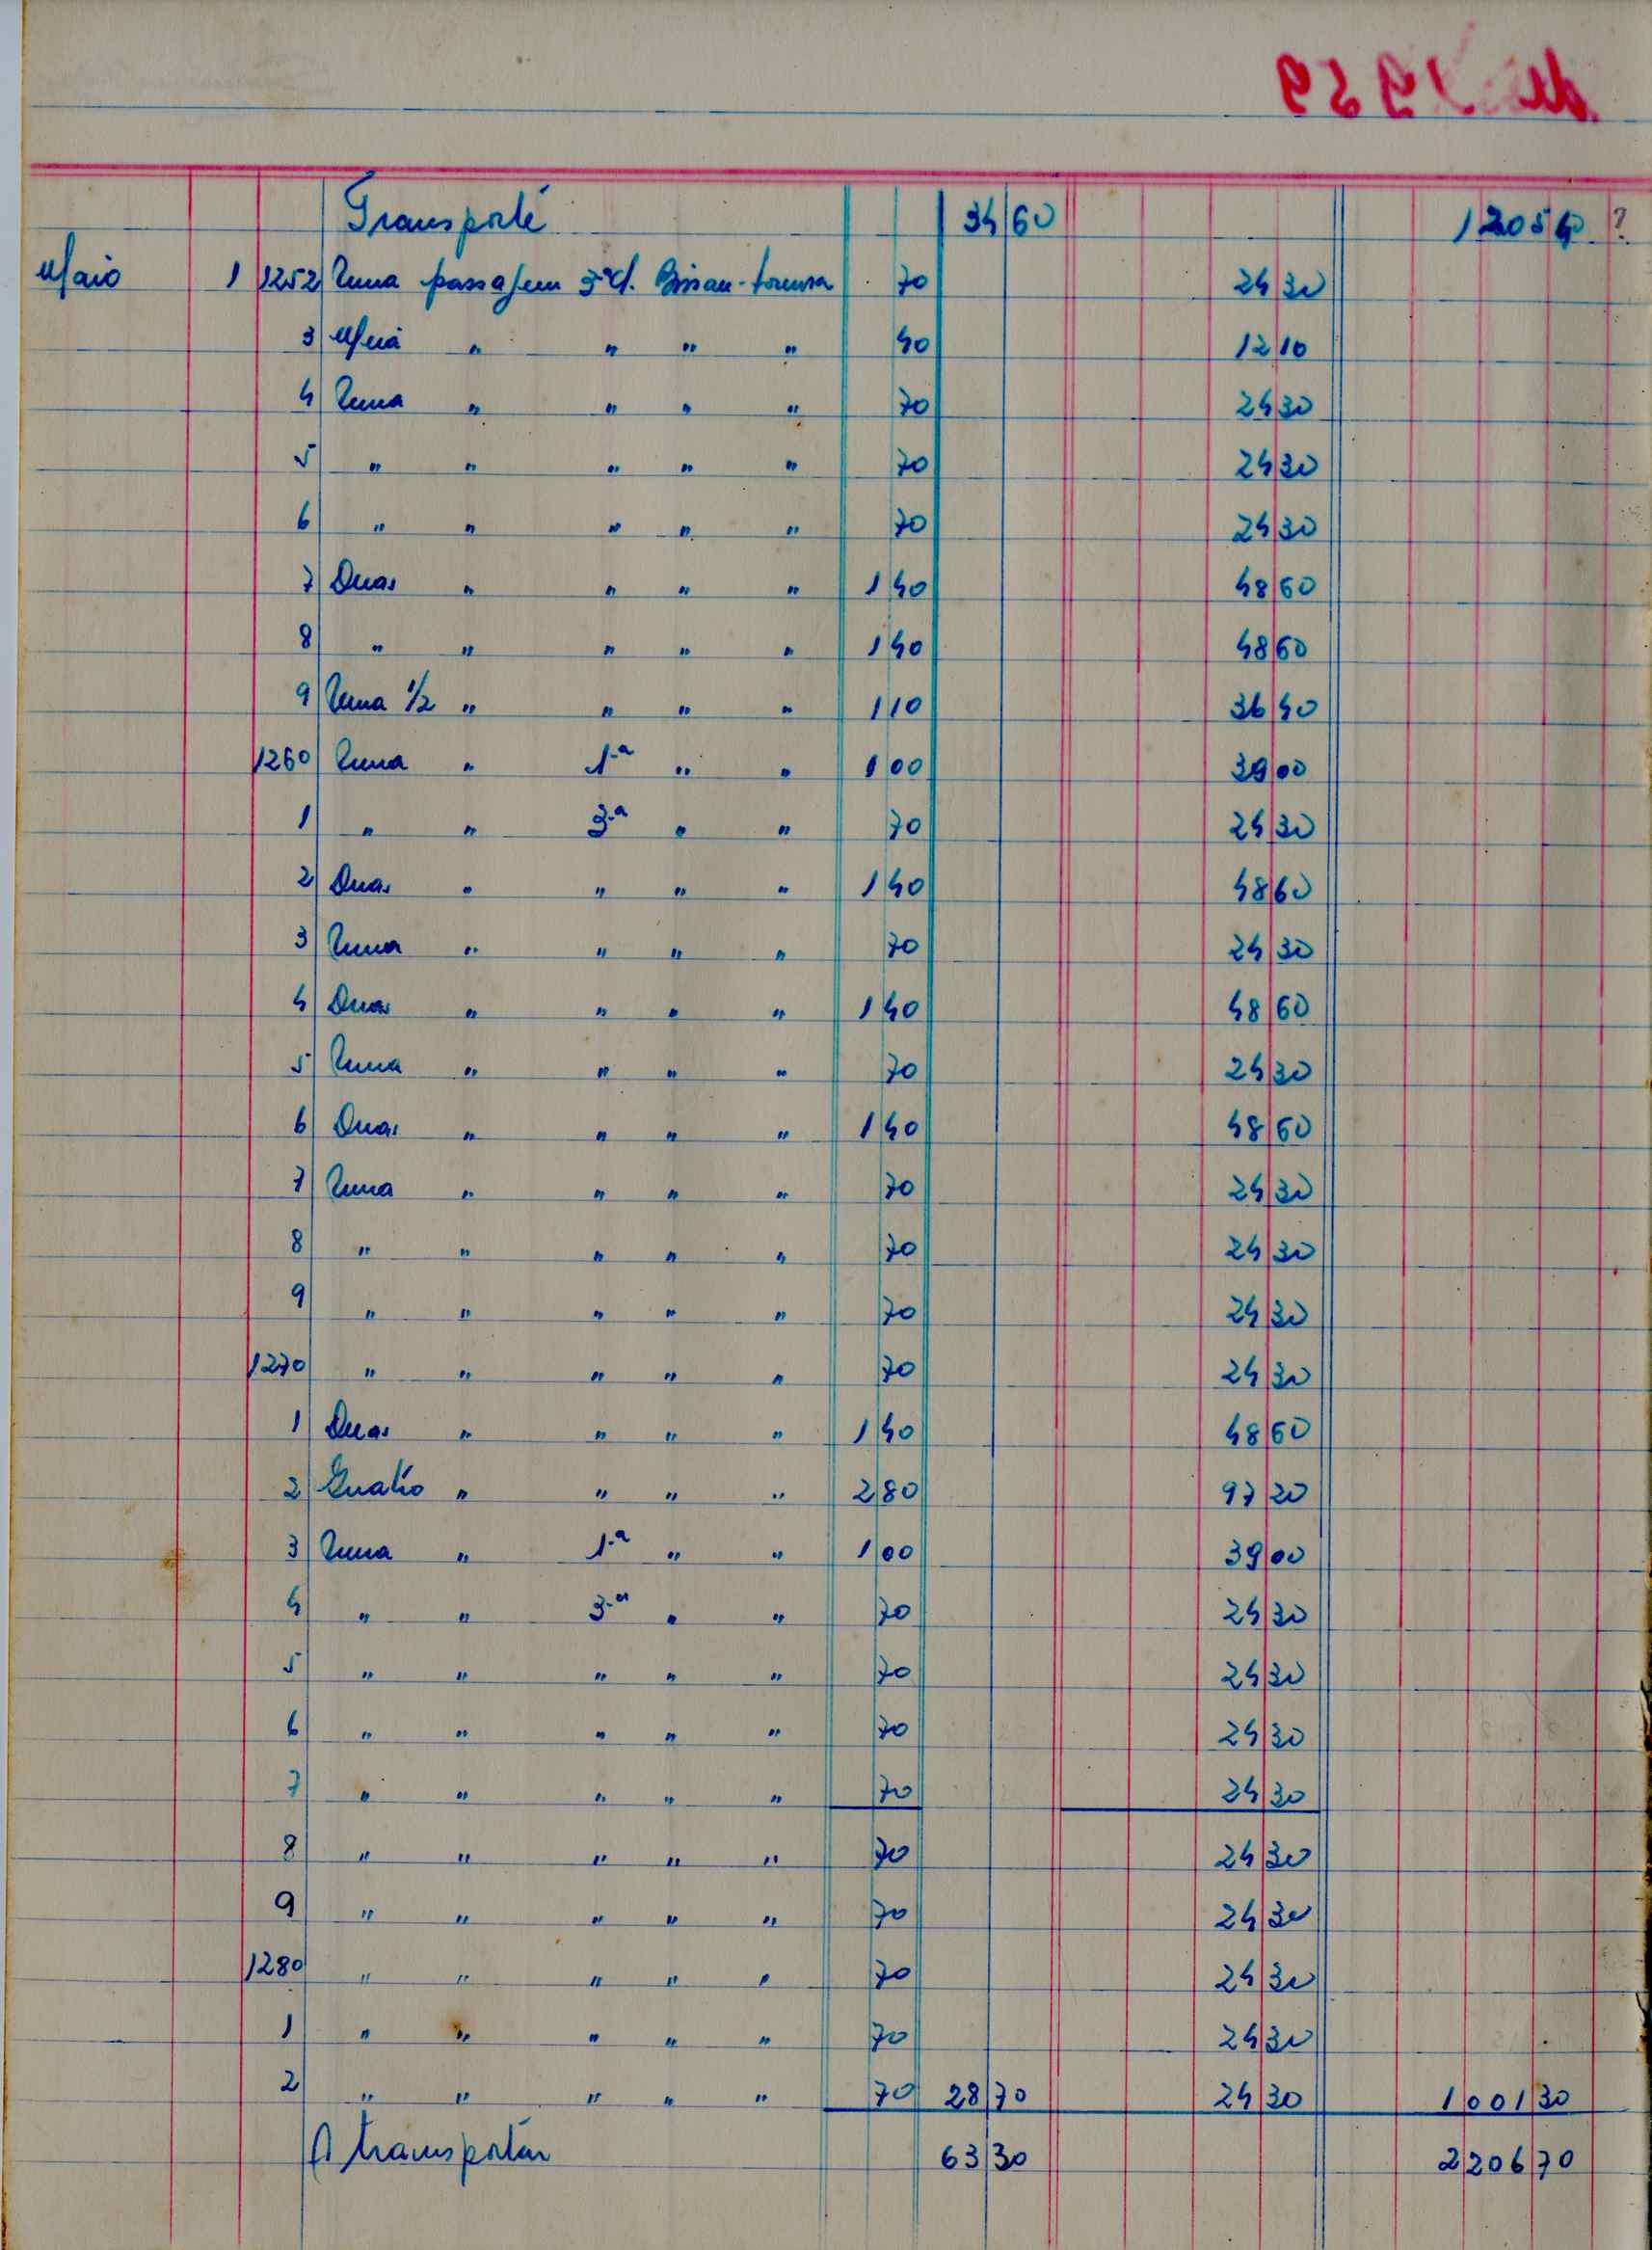 de 1959
Transporte 34 60 1205 40 ?
Maio 1 1252 Uma passagem 3ª cl. Bissau- 70 24 30
3 Meia " " " " 40 12 10
4 Uma " " " " 70 24 30
5 " " " " " 70 24 30
6 " " " " " 70 24 30
7 Duas " " " " 1 40 48 60
8 " " " " " 1 40 48 60
9 Uma 1/2 " " " " 1 10 36 40
1260 Uma " 1ª " " 1 00 39 00
1 " " 3ª " " 70 24 30
2 Duas " " " " 1 40 48 60
3 Uma " " " " 70 24 30
4 Duas " " " " 1 40 48 60
5 Uma " " " " 70 24 30
6 Duas " " " " 1 40 48 60
7 Uma " " " " 70 24 30
8 " " " " " 70 24 30
9 " " " " " 70 24 30
1270 " " " " " 70 24 30
1 Duas " " " " 1 40 48 60
2 Quatro " " " " 2 80 97 20
3 Uma " 1ª " " 1 00 39 00
4 " " 3ª " " 70 24 30
5 " " " " " 70 24 30
6 " " " " " 70 24 30
7 " " " " " 70 24 30
8 " " " " " 70 24 30
9 " " " " " 70 24 30
1280 " " " " " 70 24 30
1 " " " " " 70 24 30
2 " " " " " 70 28 70 24 30 1001 30
A transportar 63 30 2206 70